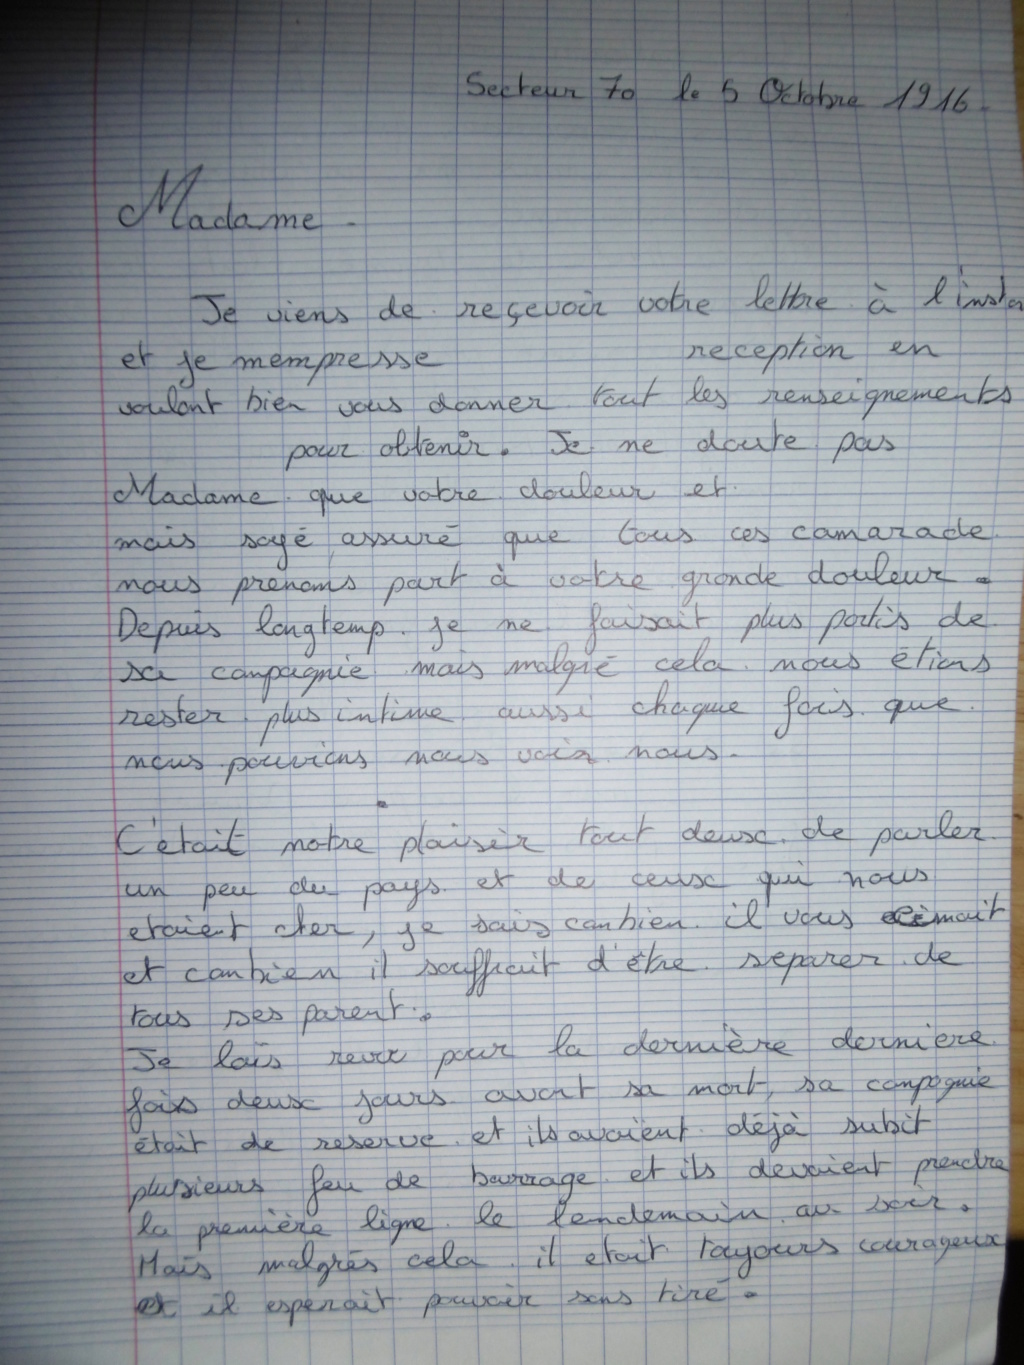 Secteur 70 le 5 Octobre 1916.
Madame.
Je viens de reçevoir votre lettre à l'insta
et je mempresse reception en
voulant bien vous donner tout les renseignements
pour obtenir. Je ne doute pas
Madame que votre douleur et
mais soyé assuré que tous ces camarade
nous prenons part à votre grande douleur.
Depuis longtemp je ne faisait plus partis de
sa compagnie mais malgré cela nous étions
rester plus intime aussi chaque fois que
nous pouvions nous voir nous.
C'était notre plaisir tout deux de parler
un peu du pays et de ceux qui nous
etaient cher, je sais conbien il vous aimait
et conbien il souffrait d'être separer de
tous ses parent.
Je lais revu pour la dernière derniere
fois deux jours avant sa mort, sa compagnie
était de reserve et ils avaient déjà subit
plusieurs feu de barrage et ils devaient prendre
la première ligne le lendemain au soir.
Mais malgrés cela il etait toujours courageux
et il esperait pouvoir sens tiré.